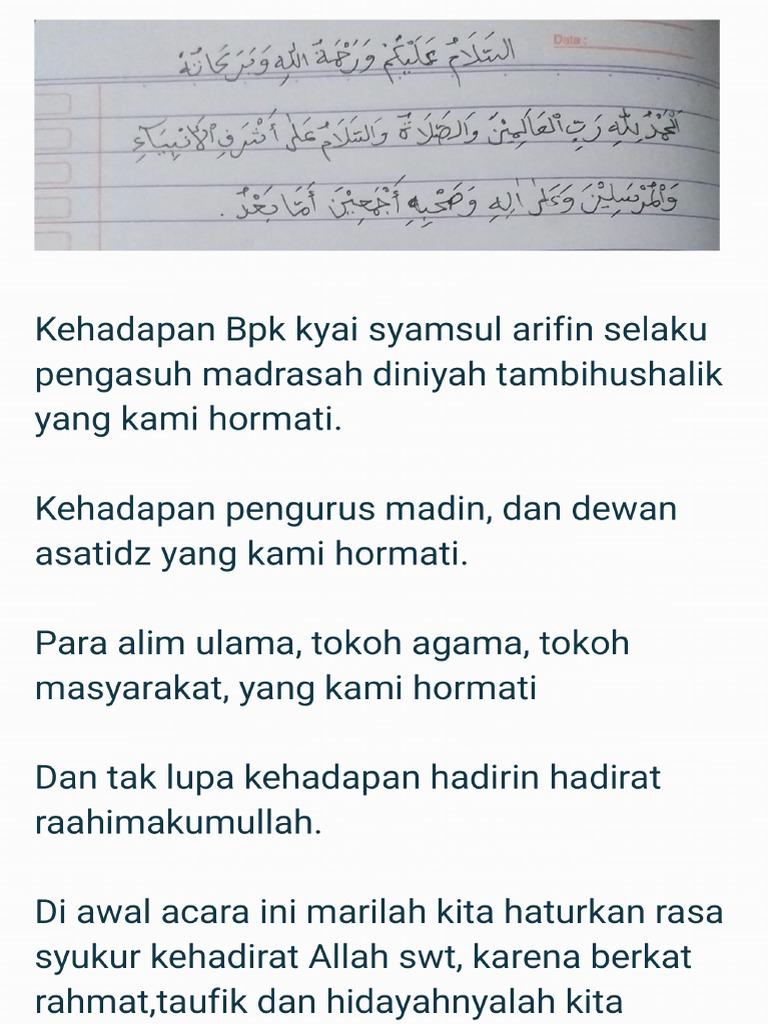 السَّلَامُ عَلَيْكُمْ وَرَحْمَةُ اللهِ وَبَرَكَاتُهُ
Date :
اَلْحَمْدُ لِلّٰهِ رَبِّ الْعَالَمِيْنَ وَالصَّلَاةُ وَالسَّلَامُ عَلَى أَشْرَفِ الْأَنْبِيَاءِ
وَالْمُرْسَلِيْنَ وَعَلَى اٰلِهِ وَصَحْبِهِ أَجْمَعِيْنَ أَمَّا بَعْدُ .
Kehadapan Bpk kyai syamsul arifin selaku
pengasuh madrasah diniyah tambihushalik
yang kami hormati.
Kehadapan pengurus madin, dan dewan
asatidz yang kami hormati.
Para alim ulama, tokoh agama, tokoh
masyarakat, yang kami hormati
Dan tak lupa kehadapan hadirin hadirat
raahimakumullah.
Di awal acara ini marilah kita haturkan rasa
syukur kehadirat Allah swt, karena berkat
rahmat,taufik dan hidayahnyalah kita